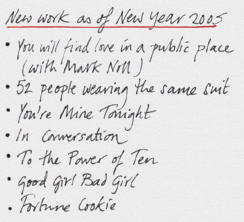 New work as of New Year 2005
• You will find love in a public place
(with Mark Noll)
• 52 people wearing the same suit
• You're Mine Tonight
• In Conversation
• To the Power of Ten
• Good Girl Bad Girl
• Fortune Cookie